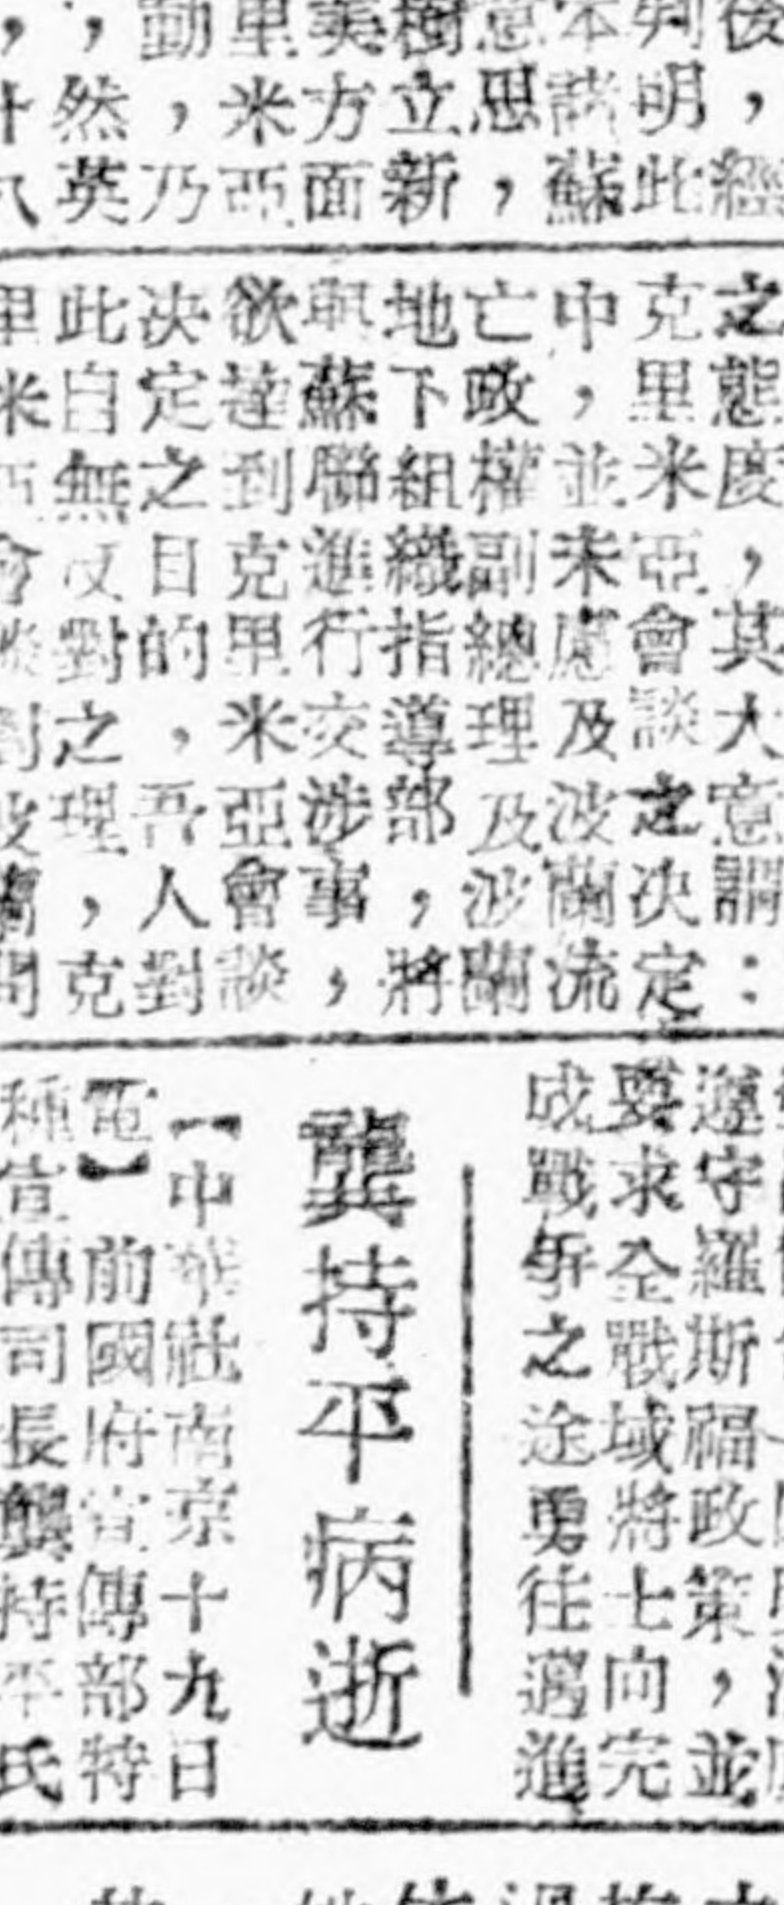 後，經
判明，此
本諜蘇
意思，
樹立新
美方面
里米亞
動，乃
，然英
之態度，其大意謂：
克里米亞會談之決定
中，並未慮及波蘭流
亡政權副總理及波蘭
地下組織指導部，將
與蘇聯進行交涉事，
欲達到克里米亞會談
决定之目的，吾人對
此自無反對之理，克
里米亞會談對波蘭問
遵守羅斯福政策，並
要求全戰域將士向完
成戰爭之途勇往邁進
龔持平病逝
【中華社南京十九日
電】前國府宣傳部特
種宣傳司長龔持平氏